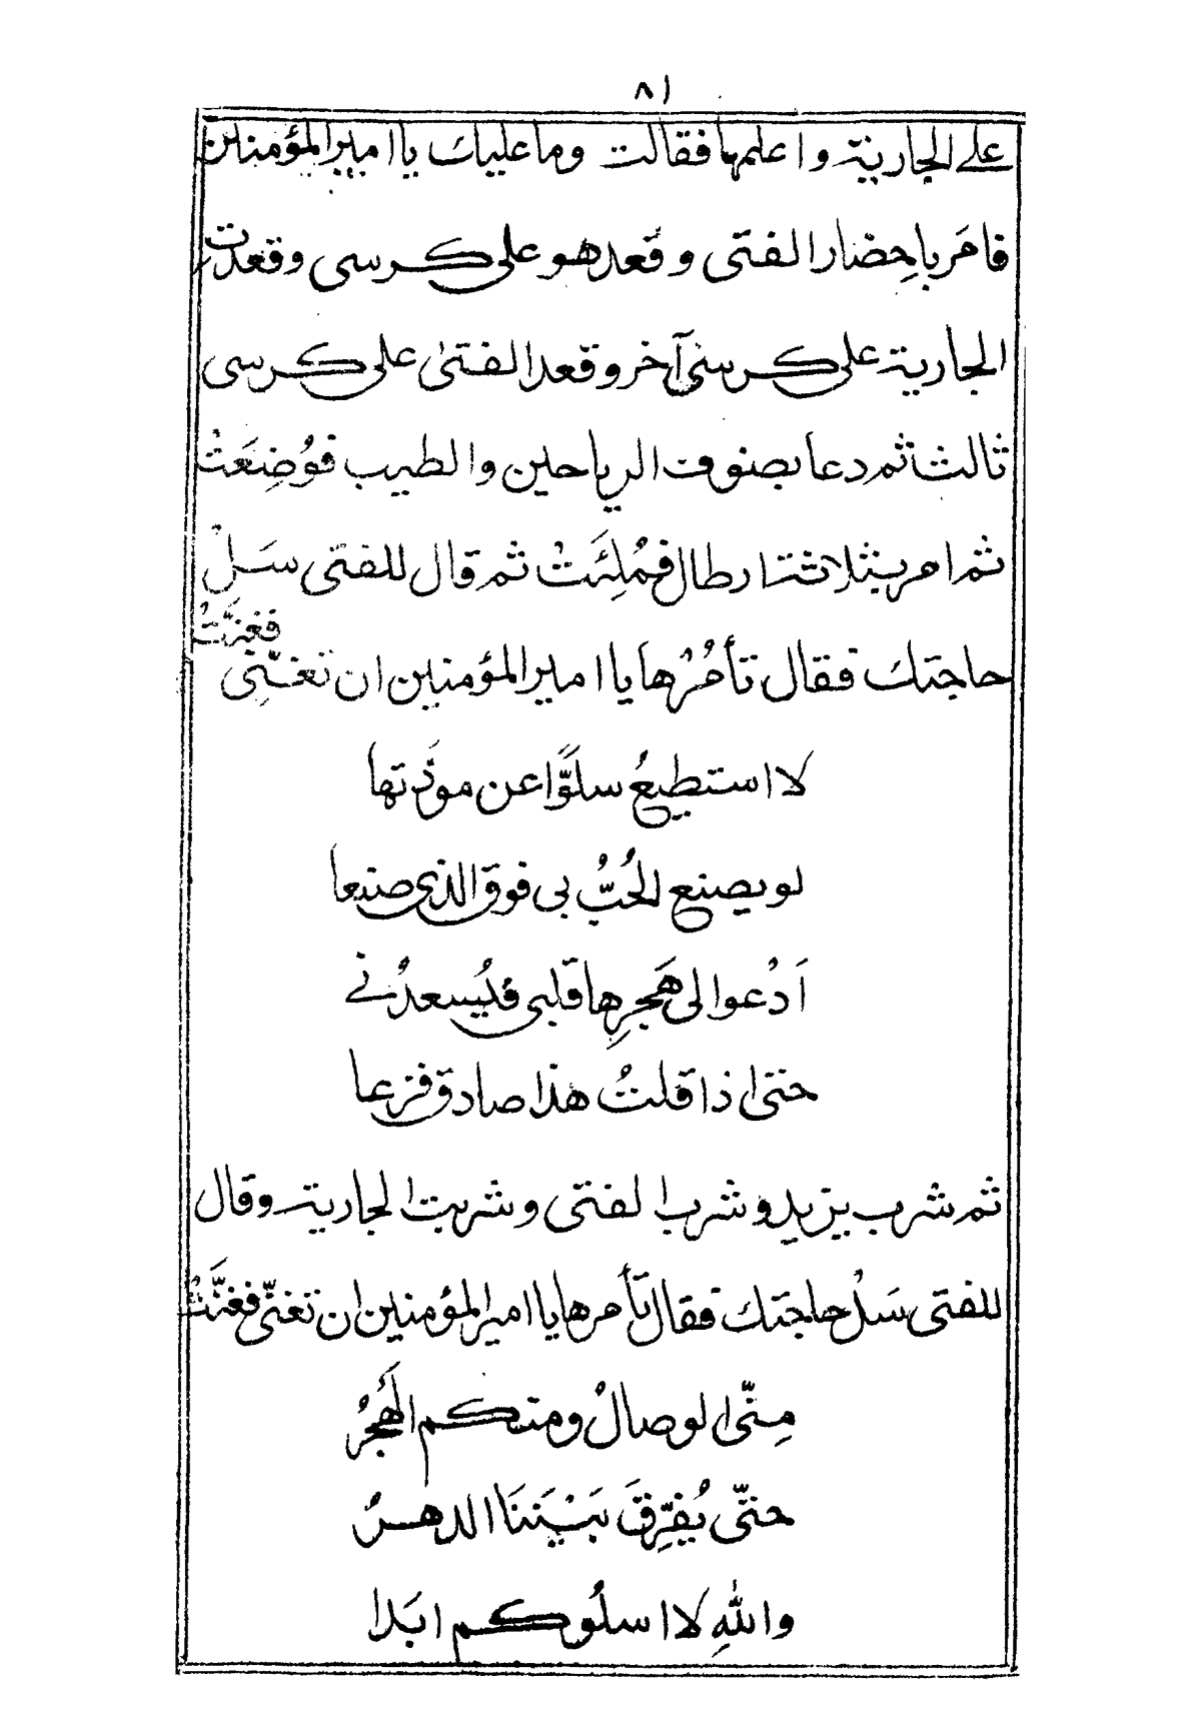 ٨١
على الجارية واعلمها فقالت وما عليك يا امير المؤمنين
فامَر باحِضار الفتى وقعد هو على كرسى وقعدت
الجارية على كرسى آخر وقعد الفتىٰ على كرسى
ثالث ثم دعا بصنوف الرياحين والطيب فوُضِعَتْ
ثم امر بثلاثة ارطال فمُلِئَتْ ثم قال للفتى سَلْ
حاجتك فقال تأمُرُها يا امير المؤمنين ان تغنّيِ فغنَّتْ
لا استطيعُ سلوًّا عن مودّتها
لو يصنع الحُبُّ بى فوق الذى صنعا
اَدْعوا الى هَجرِها قلبى فيُسعدُنے
حتىٰ اذا قلتُ هذا صادق فزعا
ثم شرب يزيد وشرب الفتى وشربت الجارية وقال
للفتى سَلْ حاجتك فقال تأمرها يا امير المؤمنين ان تغنّى فغنَّتْ
مِنّى الوصالُ ومنكم الهَجرُ
حتّى يُفرِّقَ بَيْنَنَا الدهرُ
واللهِ لا اسلُوكم ابَدا